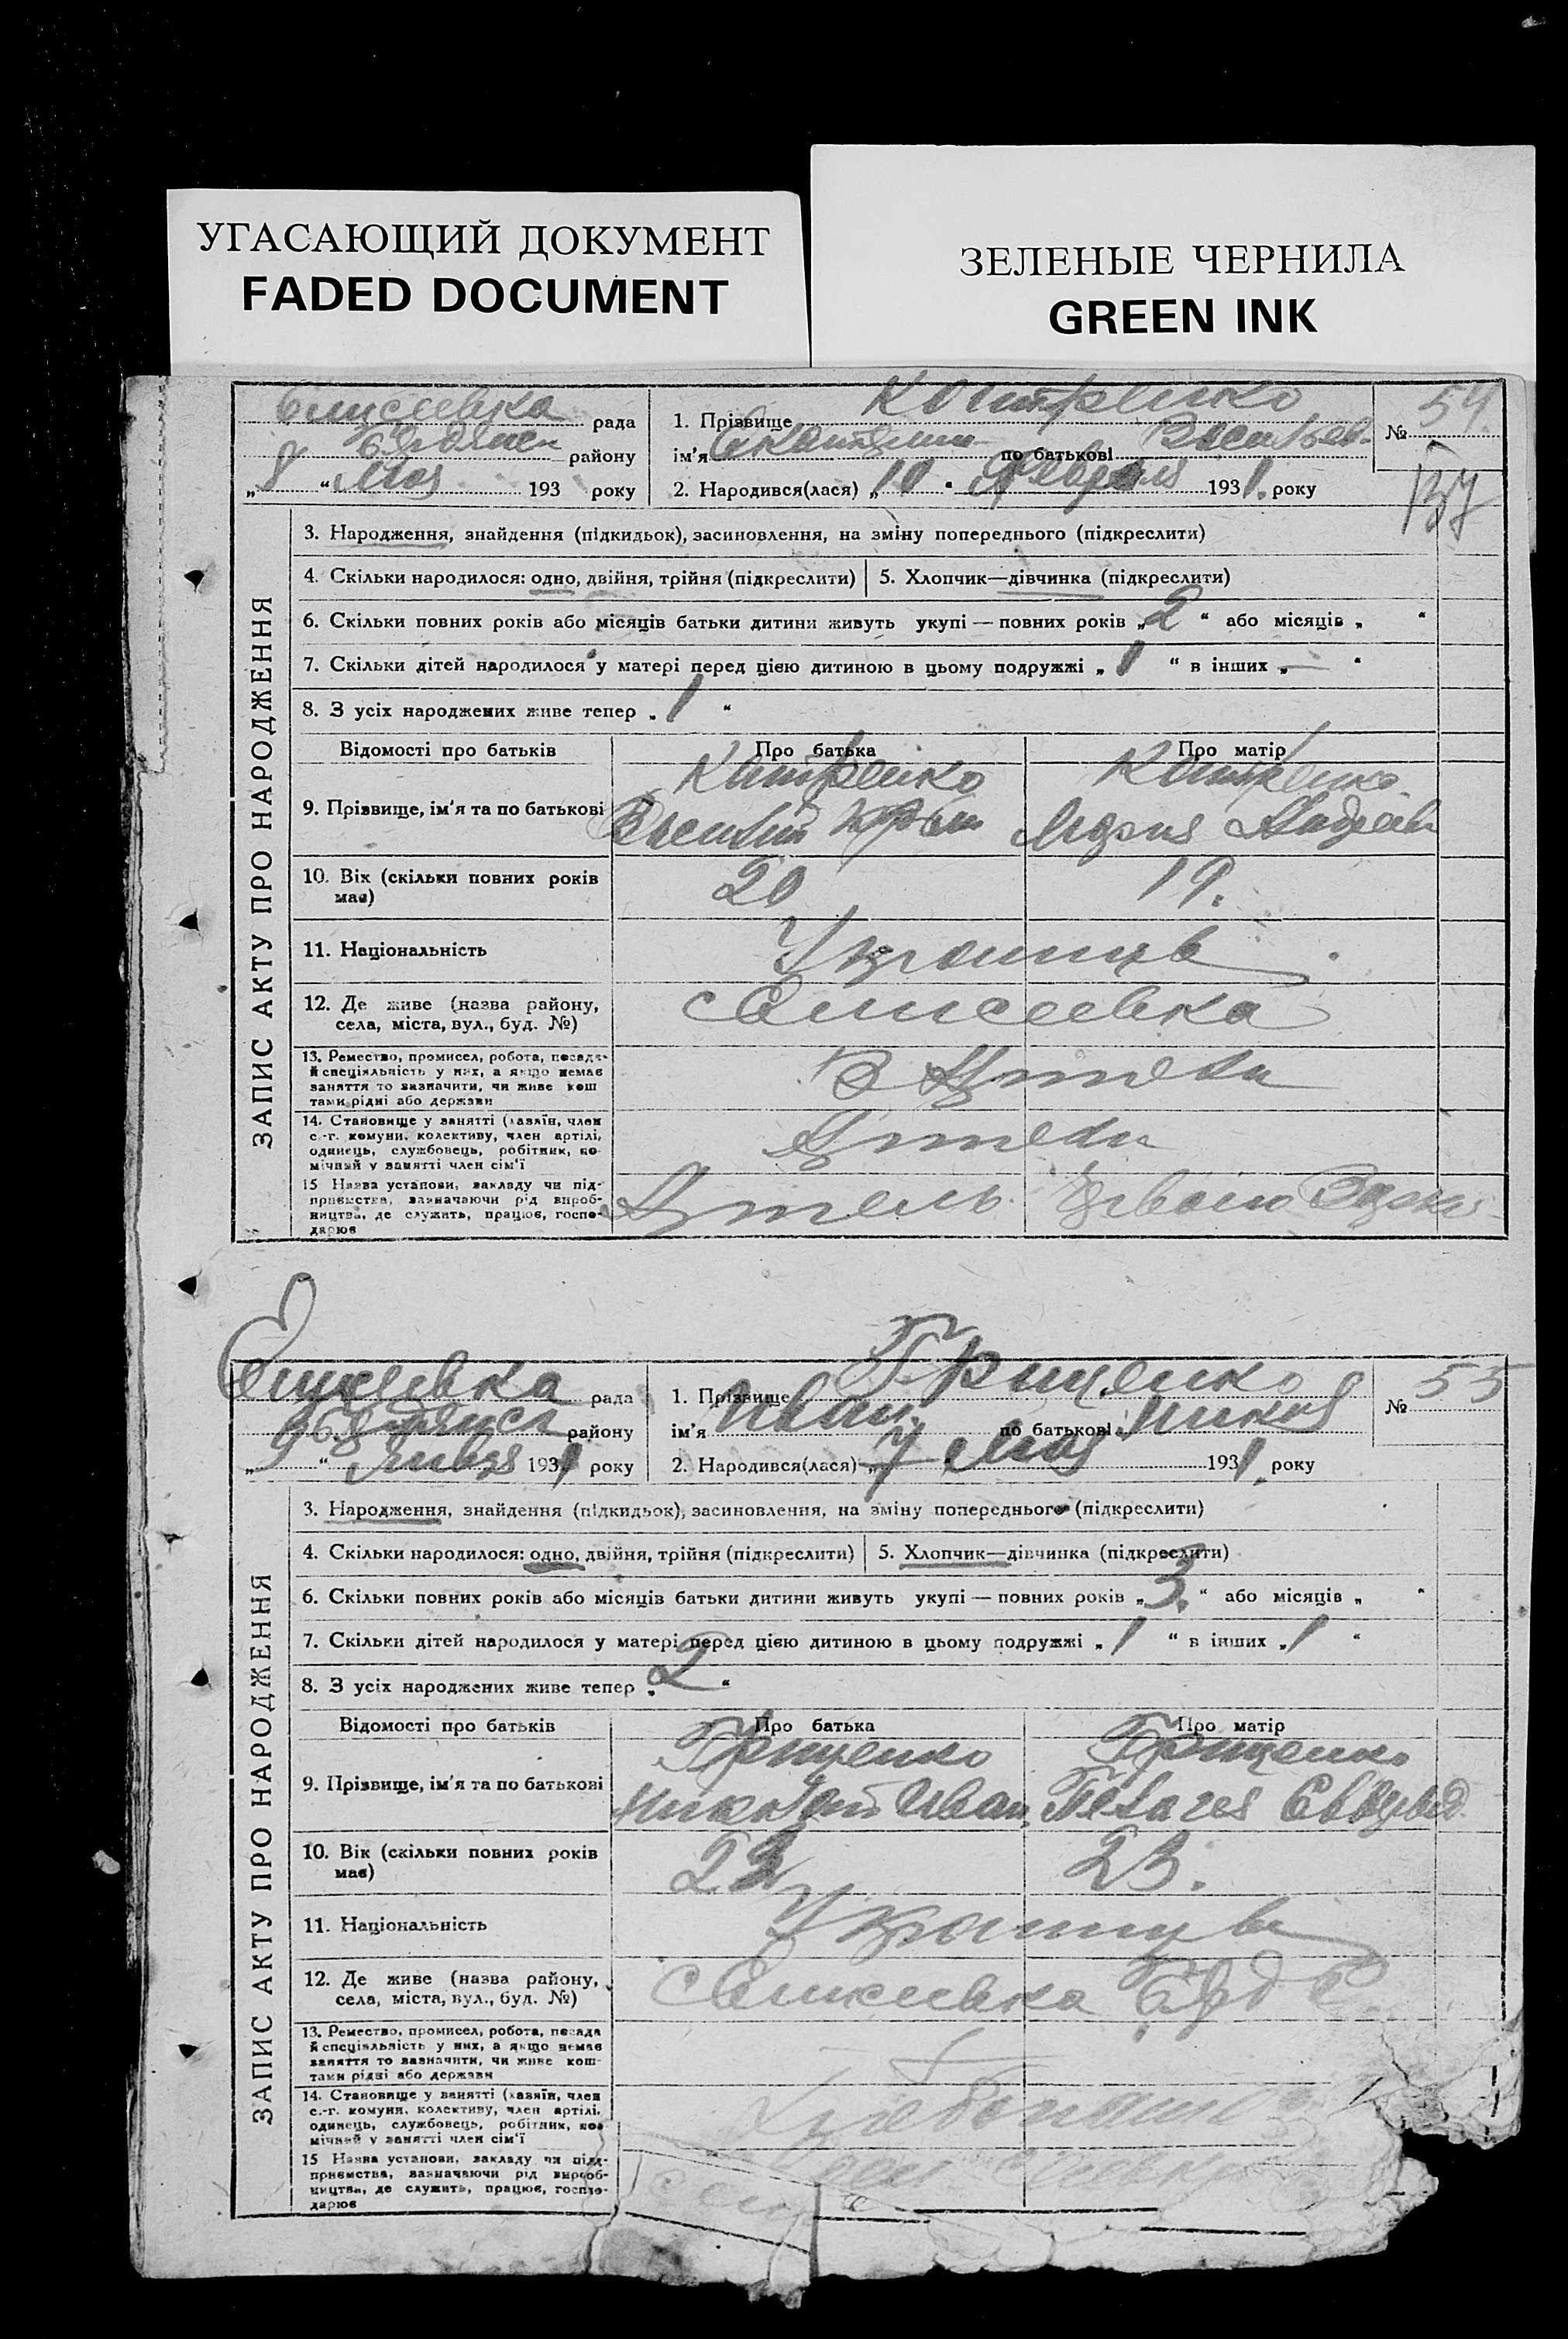 УГАСАЮЩИЙ ДОКУМЕНТ
FADED DOCUMENT
ЗЕЛЕНЫЕ ЧЕРНИЛА
GREEN INK
Елисеевка рада
районy
„8“ Мая 193 року
1. Прізвище
ім'я по батькові Васильев.
2. Народився(лася) „10“ Февраля 1931. року
№ 54.
ЗАПИС АКТУ ПРО НАРОДЖЕННЯ
3. Народження, знайдення (підкидьок), засиновлення, на зміну попереднього (підкреслити)
4. Скільки народилося: одно, двійня, трійня (підкреслити)
5. Хлопчик—дівчинка (підкреслити)
6. Скільки повних років або місяців батьки дитини живуть укупі — повних років „2“ або місяців „ “
7. Скільки дітей народилося у матері перед цією дитиною в цьому подружжі „1“ в інших „—“
8. З усіх народжених живе тепер „1“
Відомості про батьків
Про батька
Про матір
9. Прізвище, ім'я та по батькові
Василий
Мария Андреев
10. Вік (скільки повних років
має)
20
19.
11. Національність
Украинцы
12. Де живе (назва району,
села, міста, вул., буд. №)
с Елисеевка
13. Ремество, промисел, робота, посада
й спеціяльність у них, а якщо немає
заняття то зазначити, чи живе кош
тами рідні або держави
14. Становище у занятті (хазяїн, член
с.-г. комуни, колективу, член артілі,
одинець, службовець, робітник, по-
мічний у занятті член сім'ї
15 Назва установи, закладу чи під-
приємства, зазначаючи рід вироб-
ництва, де служить, працює, госпо-
дарює
Елисеевка рада
району
„9“ 1931 року
1. Прізвище Грищенко
ім'я Иван. по батькові Никол
2. Народився(лася) „7“ Мая 1931. року
№ 55
ЗАПИС АКТУ ПРО НАРОДЖЕННЯ
3. Народження, знайдення (підкидьок), засиновлення, на зміну попереднього (підкреслити)
4. Скільки народилося: одно, двійня, трійня (підкреслити)
5. Хлопчик—дівчинка (підкреслити)
6. Скільки повних років або місяців батьки дитини живуть укупі — повних років „3.“ або місяців „ “
7. Скільки дітей народилося у матері перед цією дитиною в цьому подружжі „1“ в інших „1“
8. З усіх народжених живе тепер „2“
Відомості про батьків
Про батька
Про матір
9. Прізвище, ім'я та по батькові
Грищенко
Николай Иван.
Грищенко
Пелагея
10. Вік (скільки повних років
має)
23.
11. Національність
Украинцы
12. Де живе (назва району,
села, міста, вул., буд. №)
с Елисеевка
13. Ремество, промисел, робота, посада
й спеціяльність у них, а якщо немає
заняття то зазначити, чи живе кош-
тами рідні або держави
14. Становище у занятті (хазяїн, член
с.-г. комуни, колективу, член артілі,
одинець, службовець, робітник, по-
мічний у занятті член сім'ї
15 Назва установи, закладу чи підп-
приємства, зазначаючи рід вироб-
ництва, де служить, працює, госпо-
дарює